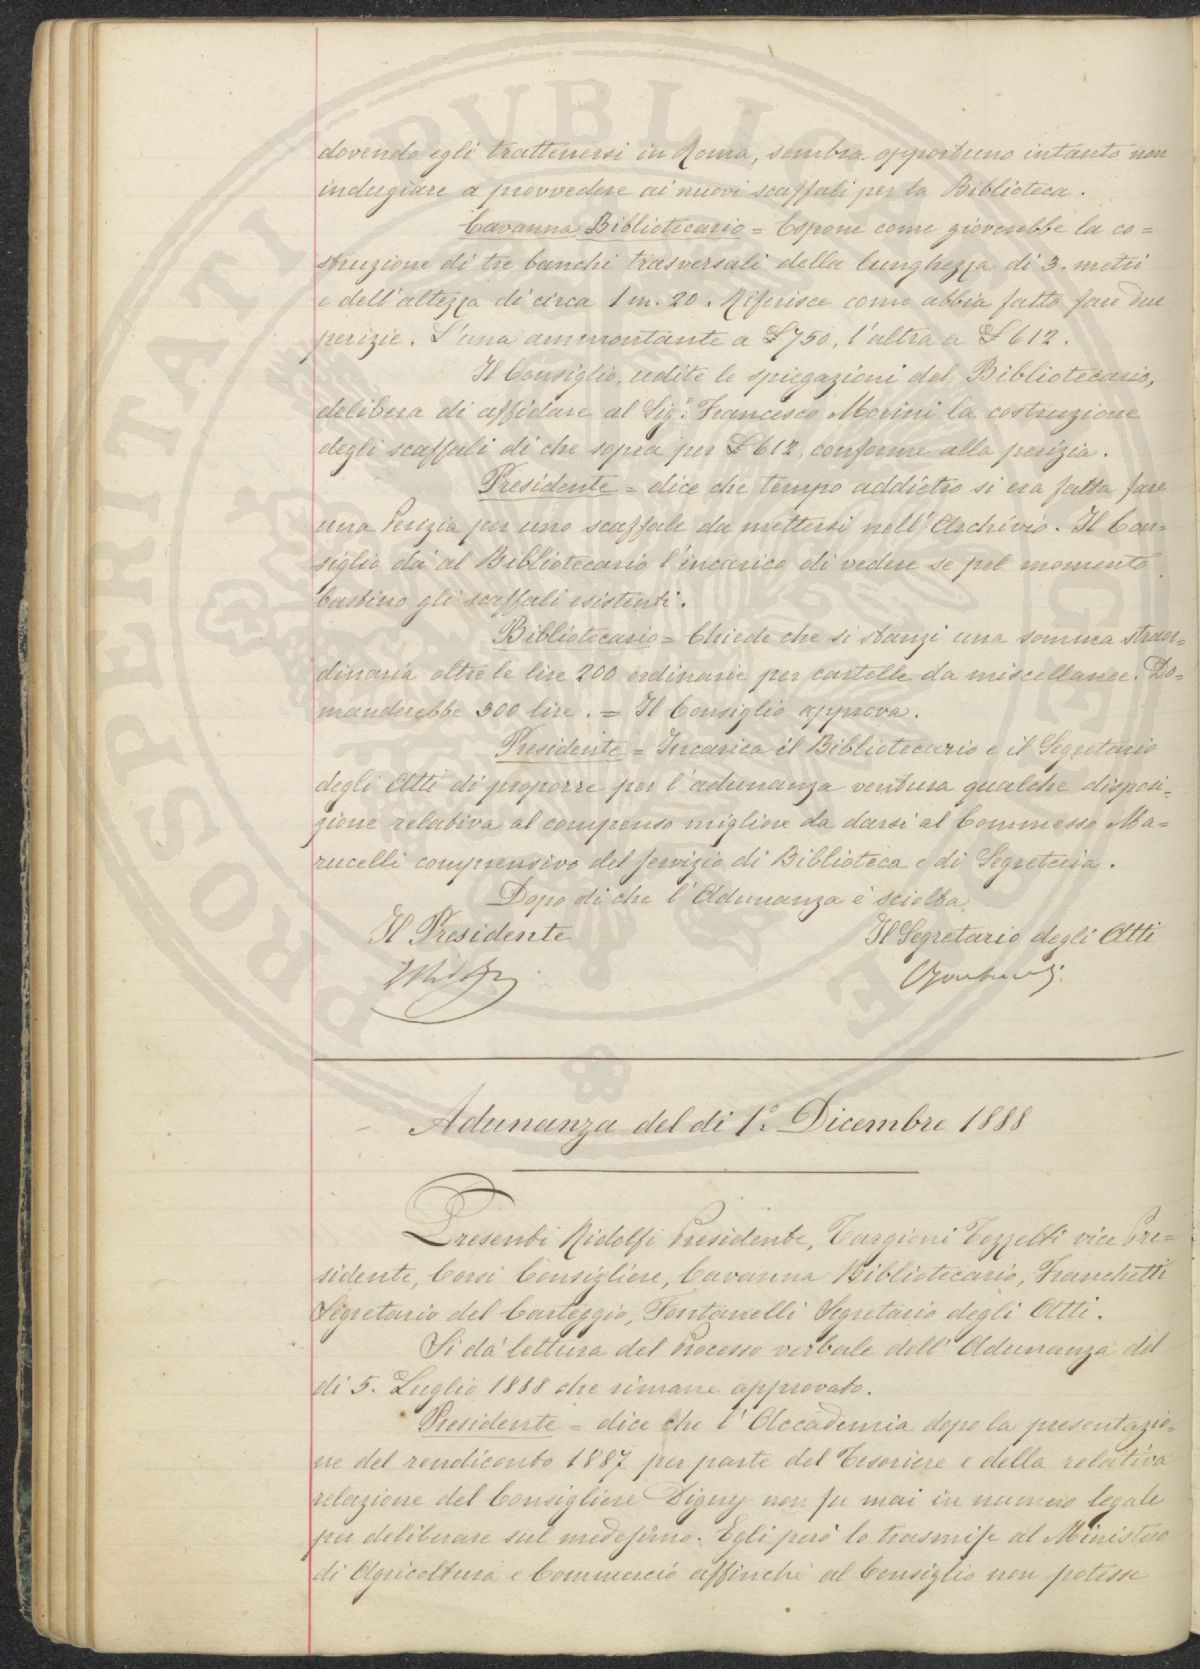 dovendo egli trattenersi in Roma, sembra opportuno intanto non
indugiare a provvedere ai nuovi scaffali per la Biblioteca.
Cavanna Bibliotecario = Espone come gioverebbe la co=
struzione di tre banchi trasversali della lunghezza di 3. metri
e dell'altezza di circa 1 m. 20. Riferisce come abbia fatto fare due
perizie. L'una ammontante a £ 750, l'altra a £ 612.
Il Consiglio, udite le spiegazioni del Bibliotecario,
delibera di affidare al Sigr. Francesco Morini la costruzione
degli scaffali di che sopra per £ 612, conforme alla perizia.
Presidente = dice che tempo addietro si era fatta fare
una Perizia per uno scaffale da mettersi nell'Archivio. Il Con=
siglio dà al Bibliotecario l'incarico di vedere se pel momento
bastino gli scaffali esistenti.
Bibliotecario = Chiede che si stanzi una somma straor=
dinaria oltre le lire 200 ordinarie per cartelle da miscellanee. Do=
manderebbe 300 lire. = Il Consiglio approva.
Presidente = Incarica il Bibliotecario e il Segretario
degli Atti di proporre per l'adunanza ventura qualche disposi=
zione relativa al compenso migliore da darsi al Commesso Ma=
rucelli comprensivo del servizio di Biblioteca e di Segreteria.
Dopo di che l'Adunanza è sciolta
Il Presidente Il Segretario degli Atti
Adunanza del di 1.° Dicembre 1888
Presenti Ridolfi Presidente, Targioni Tozzetti vice Pre=
sidente, Corsi Consigliere, Cavanna Bibliotecario, Franchetti
Segretario del Carteggio, Fontanelli Segretario degli Atti.
Si dà lettura del Processo verbale dell'Adunanza del
di 5. Luglio 1888 che rimane approvato.
Presidente = dice che l'Accademia dopo la presentazio=
ne del rendiconto 1887 per parte del Tesoriere e della relativa
relazione del Consigliere Digny non fu mai in numero legale
per deliberare sul medesimo. Egli però lo trasmise al Ministero
di Agricoltura e Commercio affinché al Consiglio non potesse
PROSPERITATI PVBLICAE